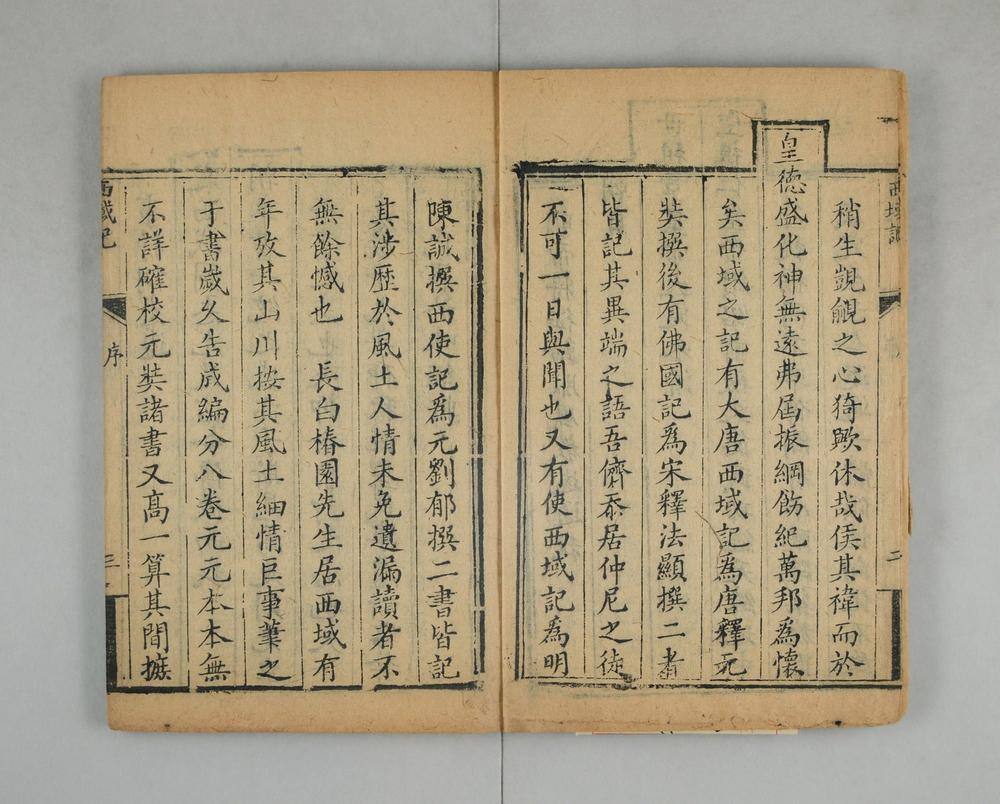 西域記
二
稍生覬覦之心猗歟休哉侯其禕而於
皇德盛化神無遠弗屆振綱飭紀萬邦為懷
矣西域之記有大唐西域記為唐釋元
奘撰後有佛國記為宋釋法顯撰二者
皆記其異端之語吾儕忝居仲尼之徒
不可一日與聞也又有使西域記為明
陳誠撰西使記為元劉郁撰二書皆記
其涉歷於風土人情未免遺漏讀者不
無餘憾也 長白椿園先生居西域有
年攷其山川按其風土細情巨事筆之
于書歲久告成編分八卷元元本本無
不詳確校元奘諸書又高一算其間摭
西域記
序
三